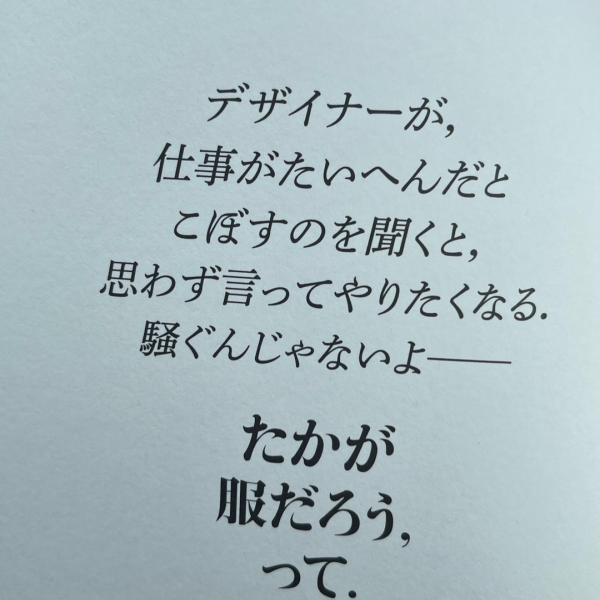 デザイナーが,
仕事がたいへんだと
こぼすのを聞くと,
思わず言ってやりたくなる.
騒ぐんじゃないよ——
たかが
服だろう,
って.